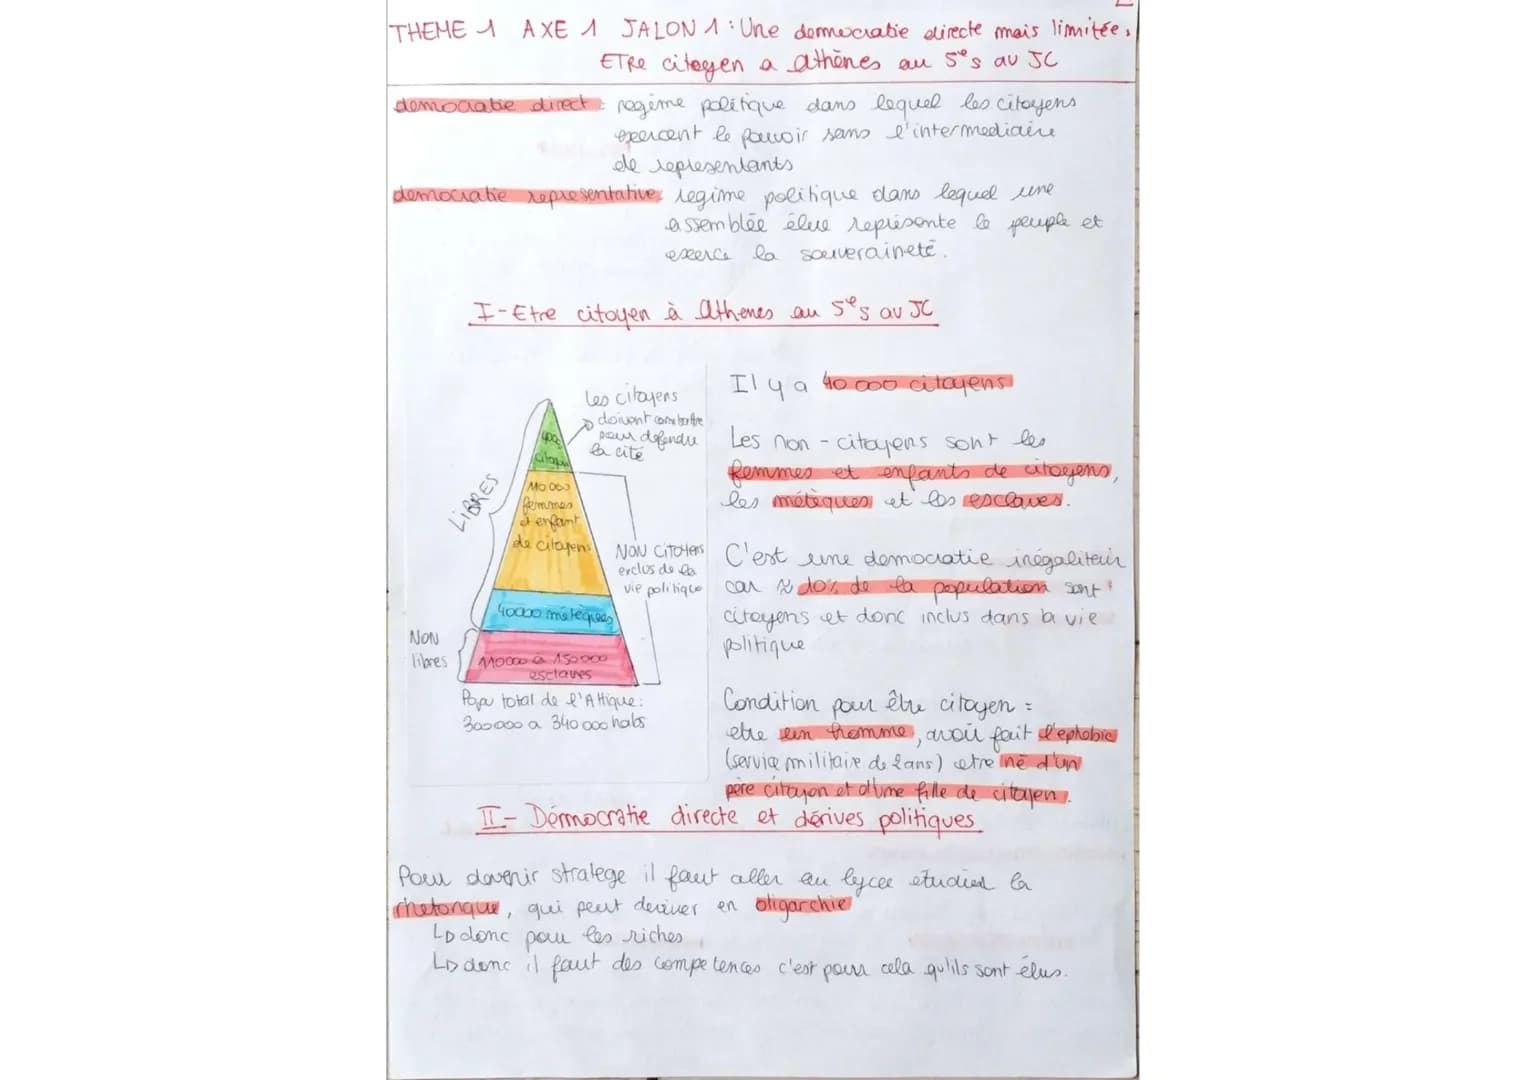 THEME 1 AXE 1 JALON 1 : Une democratie directe mais limitée,
ETRe citoyen a athènes au 5e s av JC
democratie direct : regime politique dans lequel les citoyens
exercent le pouvoir sans l'intermediaire
de representants
democratie representative : regime politique dans lequel une
assemblée élue représente le peuple et
exerce la souveraineté.
I- Etre citoyen à Athenes au 5e s av JC
les citoyens
doivent combattre
pour defendre
la cité
citoyens
LIBRES
110 000
femmes
et enfant
de citoyens
NON CITOYENS
exclus de la
vie politique
40000 métèques
NON
libres
110 000 à 150 000
esclaves
Popu total de l'Attique :
300 000 a 340 000 habs
Il y a 40 000 citoyens
Les non - citoyens sont les
femmes et enfants de citoyens,
les métèques et les esclaves.
C'est une democratie inégaliteir
car ≈ 10% de la population sont
citoyens et donc inclus dans la vie
politique
Condition pour être citoyen :
etre un homme, avoir fait l'ephebie
(service militaire de 2 ans) etre né d'un
père citoyen et d'une fille de citoyen.
II- Démocratie directe et dérives politiques
Pour devenir stratege il faut aller au lycee etudier la
rhetorique, qui peut deriver en oligarchie
↳ donc pour les riches
↳ donc il faut des competences c'est pour cela qu'ils sont élus.